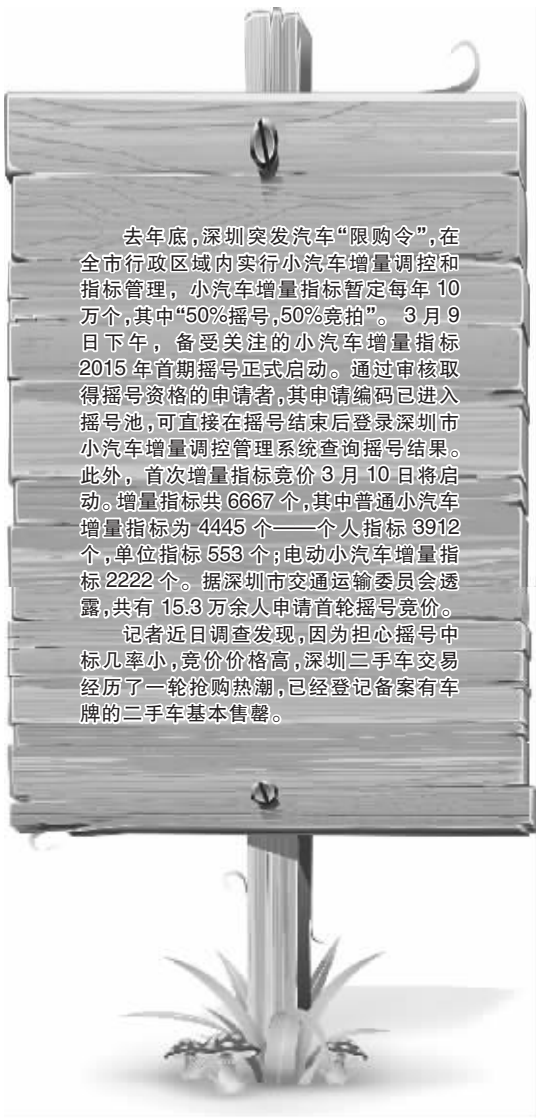 去年底,深圳突发汽车“限购令”,在
全市行政区域内实行小汽车增量调控和
指标管理，小汽车增量指标暂定每年 10
万个,其中“50%摇号,50%竞拍”。 3 月 9
日下午，备受关注的小汽车增量指标
2015 年首期摇号正式启动。通过审核取
得摇号资格的申请者,其申请编码已进入
摇号池,可直接在摇号结束后登录深圳市
小汽车增量调控管理系统查询摇号结果。
此外，首次增量指标竞价 3 月 10 日将启
动。增量指标共 6667 个,其中普通小汽车
增量指标为 4445 个——个人指标 3912
个,单位指标 553 个;电动小汽车增量指
标 2222 个。据深圳市交通运输委员会透
露,共有 15.3 万余人申请首轮摇号竞价。
记者近日调查发现,因为担心摇号中
标几率小,竞价价格高,深圳二手车交易
经历了一轮抢购热潮,已经登记备案有车
牌的二手车基本售罄。